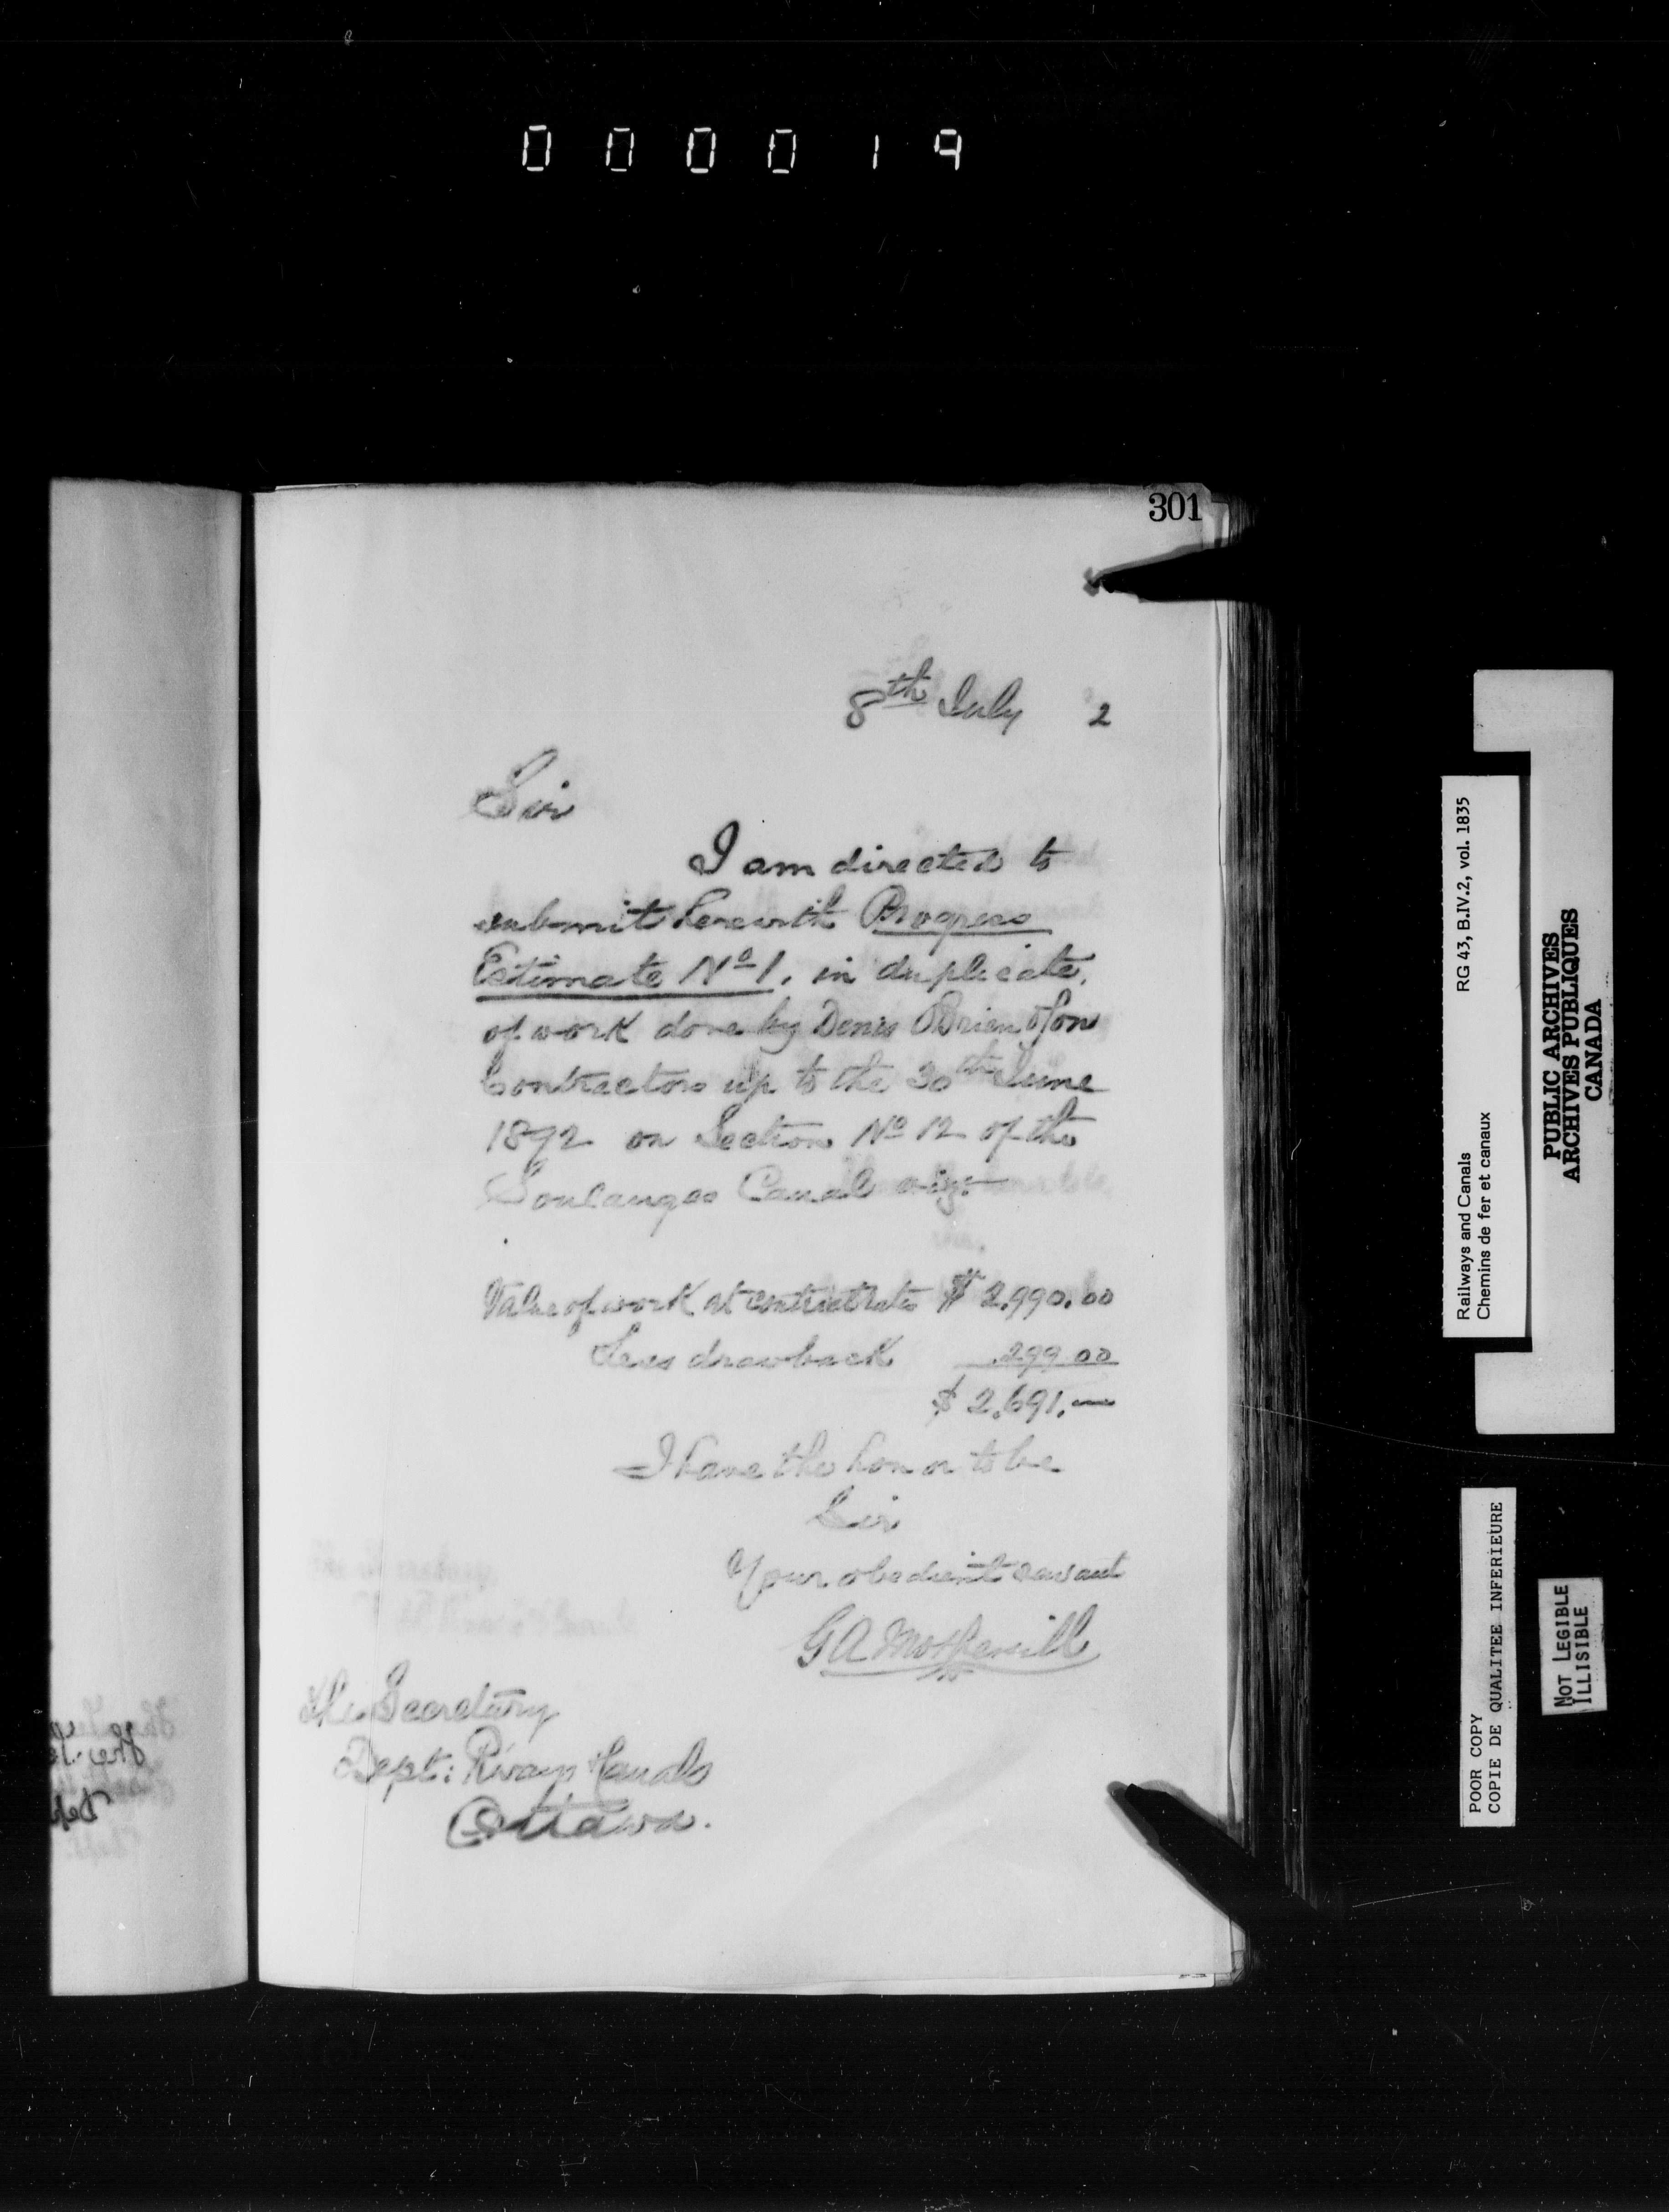 000019
301
8th July 2
Sir
I am directed to
submit herewith Progress
Estimate No 1. in duplicate.
of work done by Denis OBrien & Son
Contractors up to the 30th June
1892 on Section No 12 of the
Soulanges Canal viz:—
Value of work at contract rates $ 2,990.00
Less drawback 299 00
$ 2,691.—
I have the honor to be
Sir
Your obedient servant
G A Mothersill
The Secretary
Dept: R'ways & Canals
Ottawa.
Railways and Canals RG 43, B.IV.2, vol. 1835
Chemins de fer et canaux
PUBLIC ARCHIVES
ARCHIVES PUBLIQUES
CANADA
POOR COPY
COPIE DE QUALITEE INFERIEURE
NOT LEGIBLE
ILLISIBLE